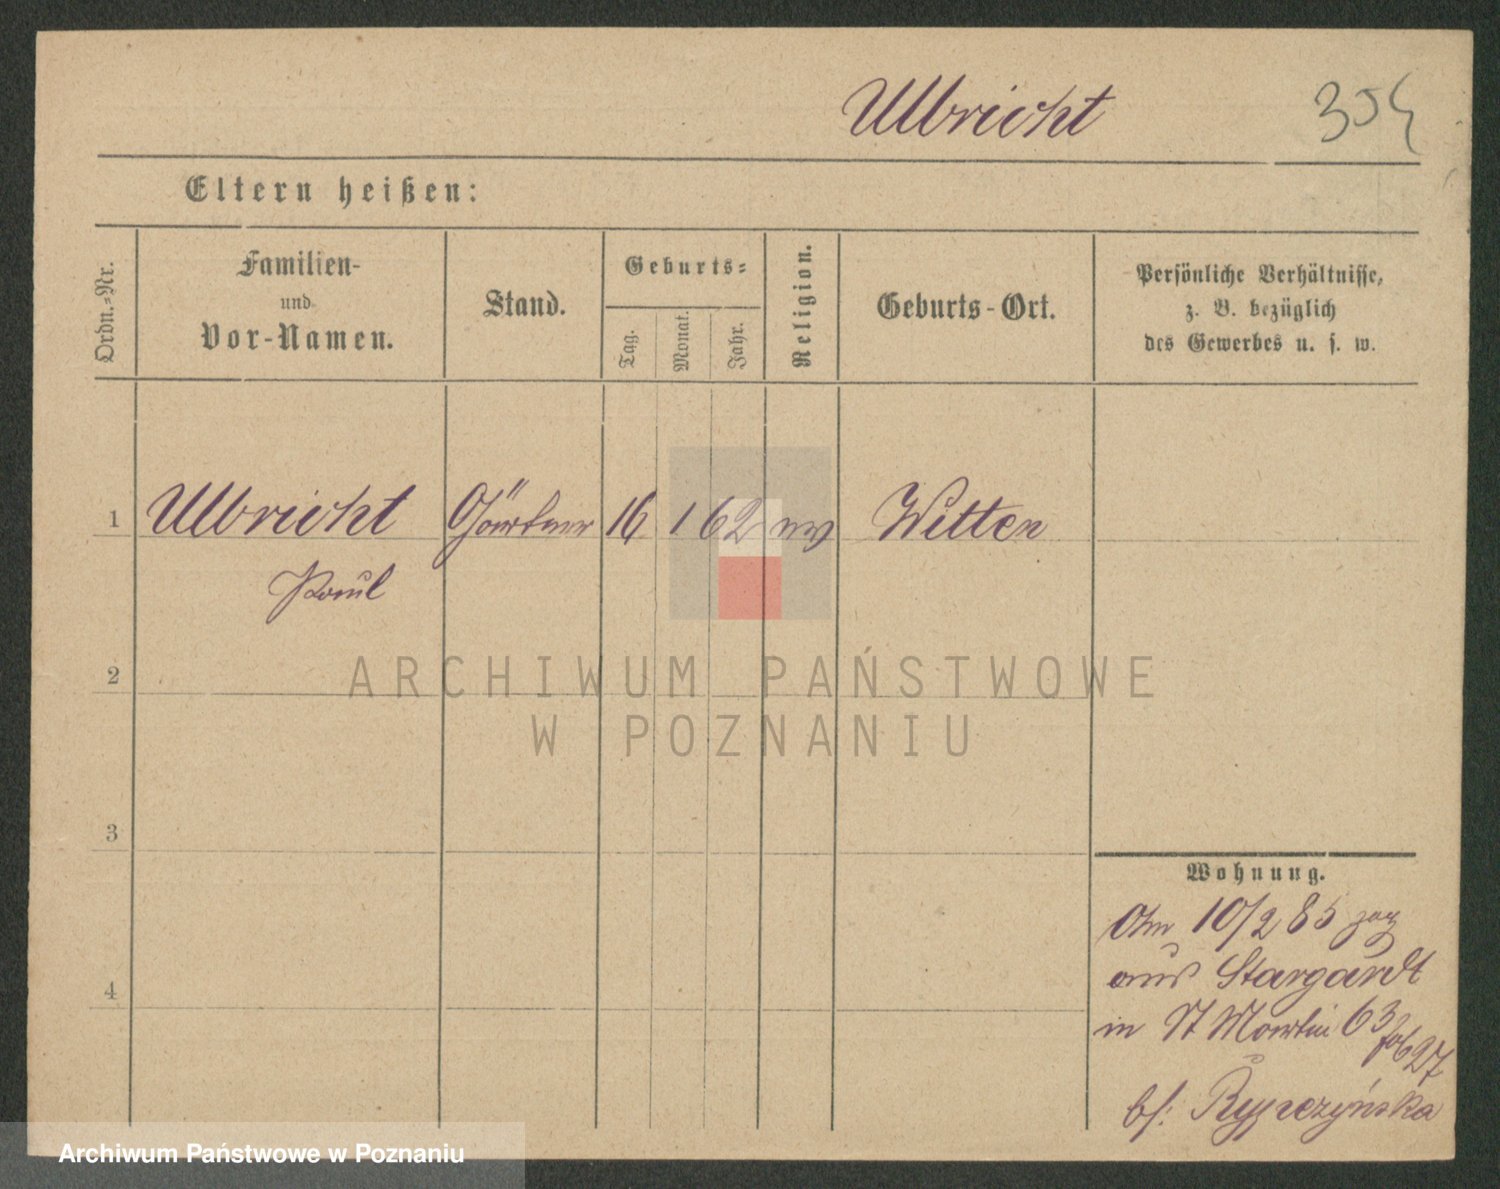 Ulbricht 354
Eltern heißen:
Ordn.-Nr.
Familien-
und
Vor-Namen.
Stand.
Geburts-
Tag.
Monat.
Jahr.
Religion.
Geburts-Ort.
Persönliche Verhältnisse,
z. B. bezüglich
des Gewerbes u. s. w.
1 Ulbricht Gärtner 16 1 62 ev Witten
Paul
2
ARCHIWUM PAŃSTWOWE
W POZNANIU
3
Wohnung.
Am 10/2 85 zog
aus Stargardt
in St Martin 63
4
bs: Rypczyńska
Archiwum Państwowe w Poznaniu